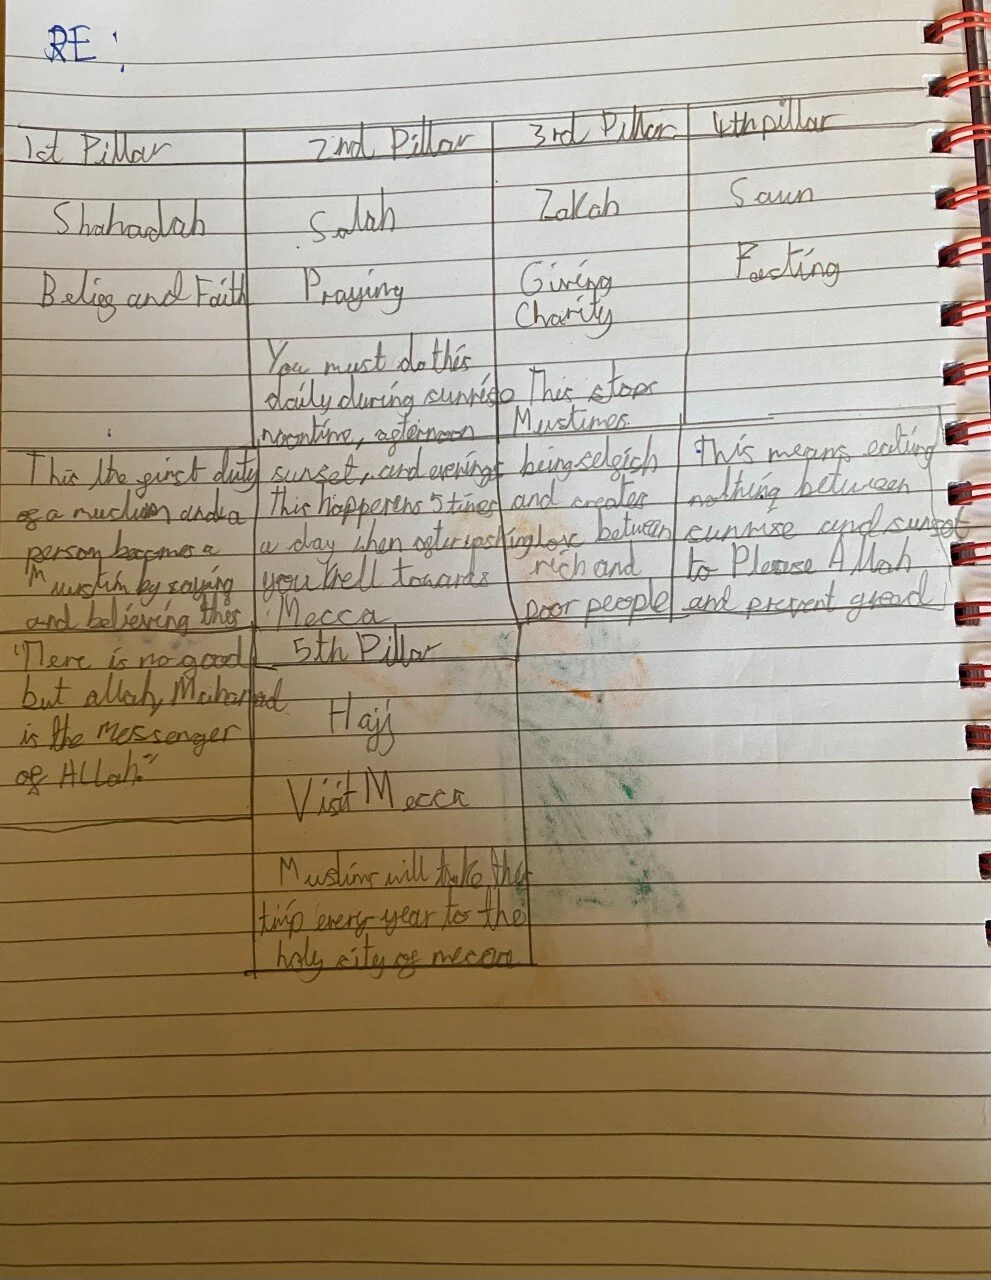 RE:
1st Pillar
Shahadah
Belief and Faith
This the first duty
of a muslim and a
person becomes a
Muslim by saying
and believing this
"There is no good
but allah, Mahamad
is the messenger
of Allah."
2nd Pillar
Salah
Praying
You must do this
daily during sunrise
noontime, afternoon
sunset, and evenings
This happerens 5 times
a day when
you knell towards
Mecca
3rd Pillar
Zakah
Giving
Charity
This stops
Muslimes
being selfish
and creates
love between
rich and
poor people
4th pillar
Saum
Fasting
This means eating
nothing between
sunrise and sunset
to Please Allah
and prevent gread
5th Pillar
Hajj
Visit Mecca
Muslims will take the
trip every year to the
holy city of mecca